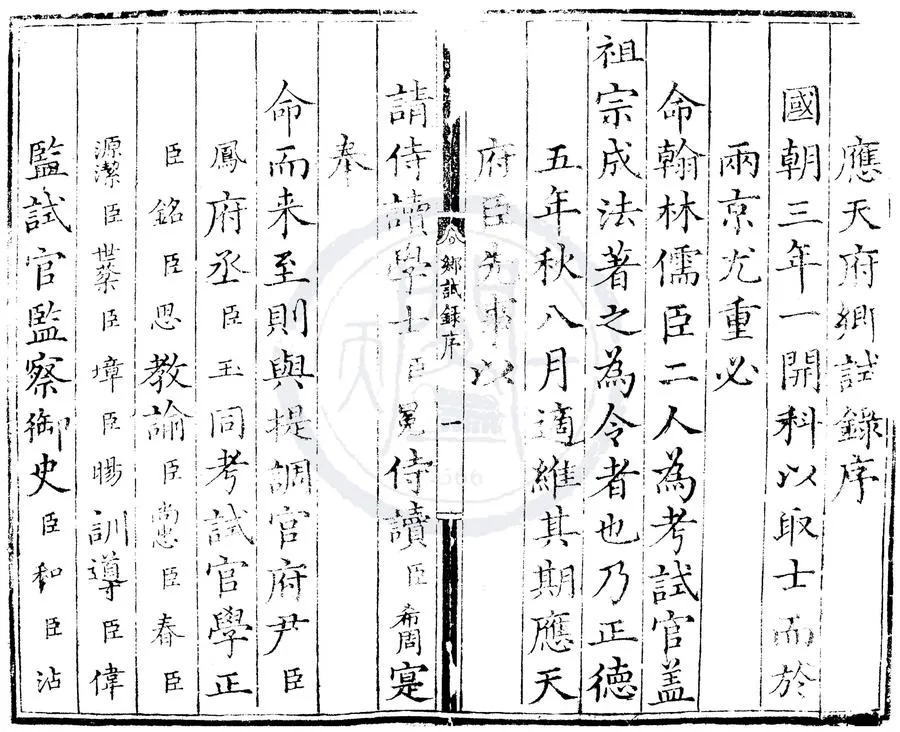 應天府鄉試録序
國朝三年一開科以取士而於
兩京尤重必
命翰林儒臣二人為考試官盖
祖宗成法著之為令者也乃正德
五年秋八月適維其期應天
府臣先事以
鄉試録序 一
請侍讀學士臣冕侍讀臣希周寔
奉
命而来至則與提調官府尹臣
鳳府丞臣玉同考試官學正
臣銘臣思教諭臣尚忠臣春臣
源潔臣世蔡臣璋臣暘訓導臣偉
監試官監察御史臣和臣沾